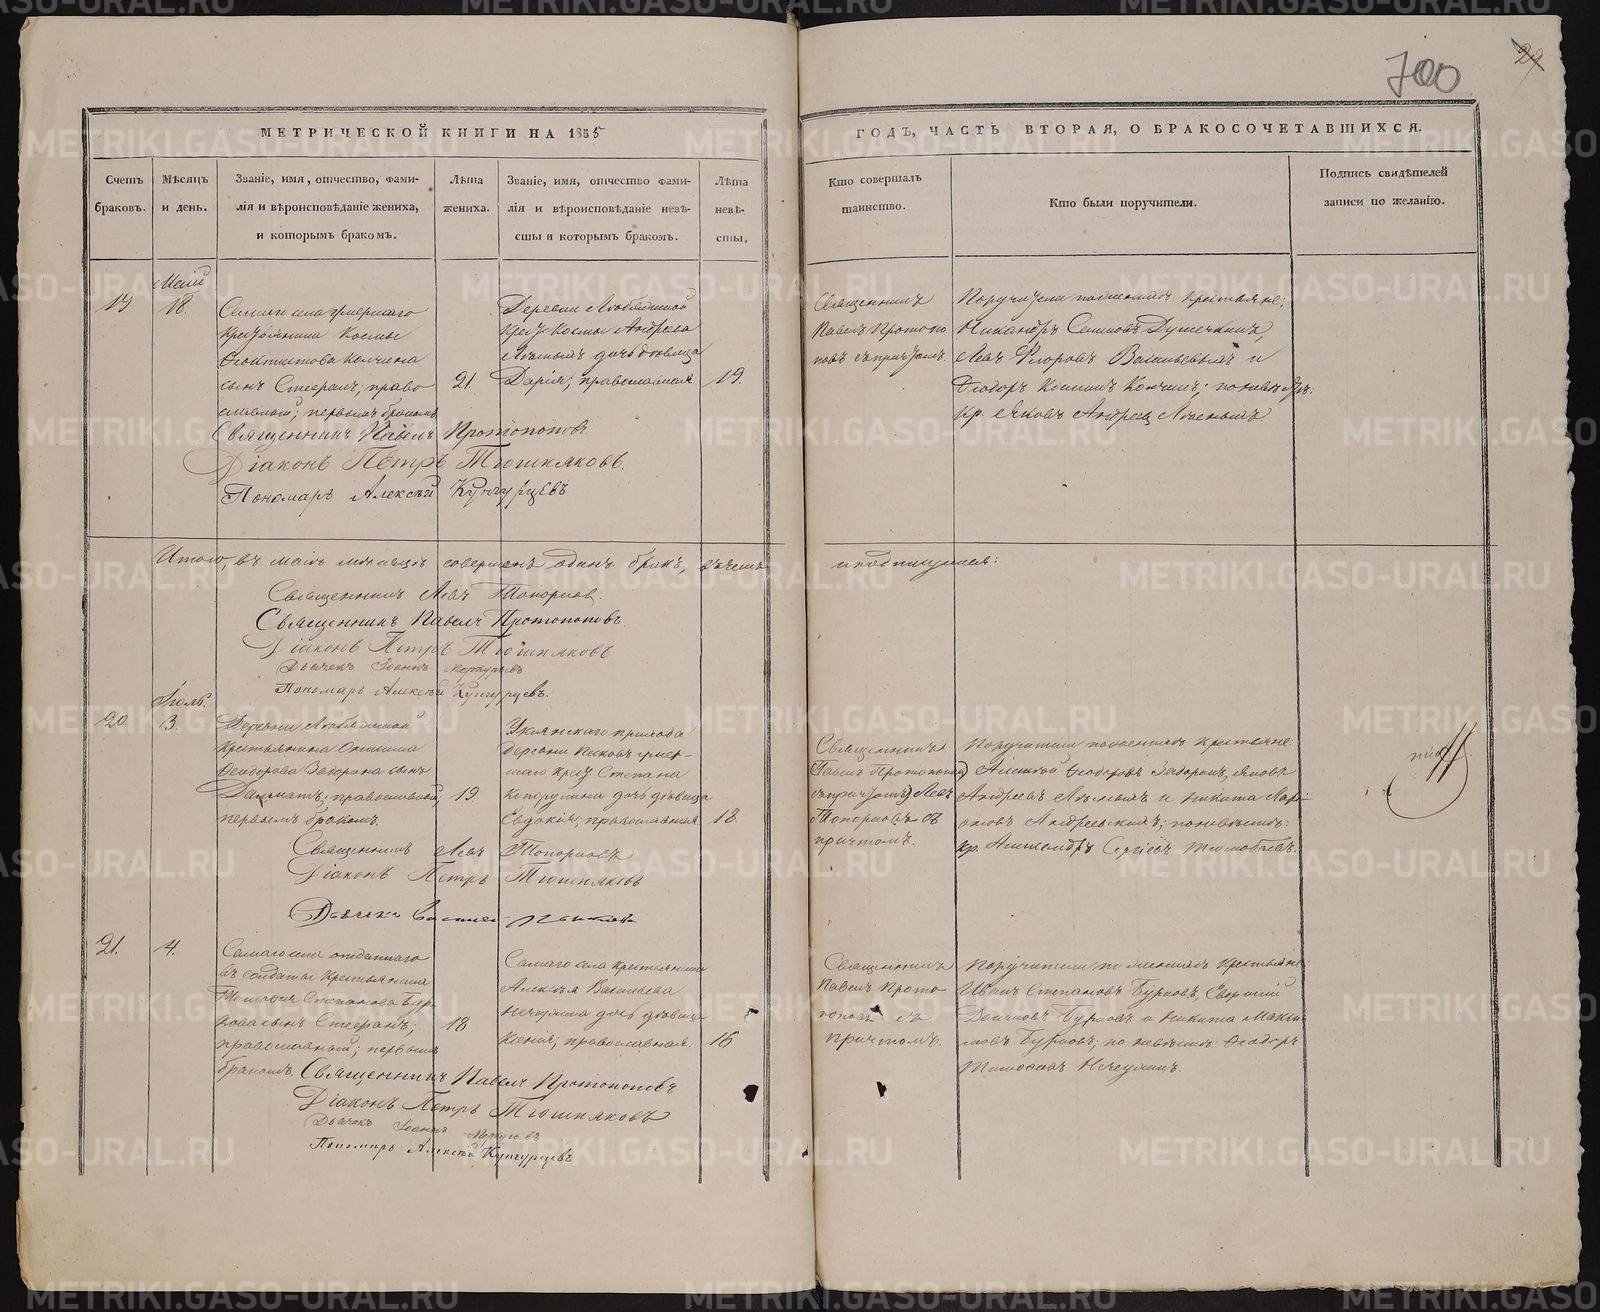 700
22
МЕТРИЧЕСКОЙ КНИГИ НА 1855
ГОДЪ, ЧАСТЬ ВТОРАЯ, О БРАКОСОЧЕТАВШИХСЯ.
Счетъ браковъ.
Мѣсяцъ и день.
Званіе, имя, отчество, фами-
лія и вѣроисповѣданіе жениха,
и которымъ бракомъ.
Лѣта
жениха.
Званіе, имя, отчество фами-
лія и вѣроисповѣданіе невѣ-
сты и которымъ бракомъ.
Лѣта
невѣ-
сты,
Кто совершалъ
таинство.
Кто были поручители.
Подпись свидѣтелей
записи по желанію.
19
Маій
18.
Самаго села умершаго
крестьянина Космы
Феоктистова
сынъ Стефанъ; право
славный; первымъ бракомъ
21.
Деревни
Космы Андреева
дочь дѣвица
Дарія, православная
19.
Священникъ
Павелъ Протопо
повъ съ причтомъ.
Поручители по женихѣ крестьяне:
Никандръ
Левъ Флоровъ Васильевыхъ и
Ѳеодоръ Косминъ; по невѣстѣ:
кр. Яковъ Андреевъ
Священникъ Павелъ Протопоповъ
Діаконъ Петръ Тюшняковъ.
Пономарь Алексѣй Кунгурцевъ
Итого, въ маіѣ мѣсяцѣ совершенъ одинъ бракъ, въ чемъ
и подпишемся:
Священникъ Левъ Топорковъ.
Священникъ Павелъ Протопоповъ
Діаконъ Петръ Тюшняковъ
Дьячекъ Іоаннъ Меркурьевъ
Пономарь Алексѣй Кунгурцевъ.
20.
Іюль.
3.
Деревни
крестьянина
Ѳеодорова Задорина сынъ
Далматъ; православный,
первымъ бракомъ.
19
прихода
деревни Песковъ умер-
шаго крест Степана
дочь дѣвица
Евдокія; православная
18.
Священникъ
Павелъ Протопопов
съ причтомъ Левъ
Топорковъ съ
причтомъ.
Поручители по женихѣ крестьяне:
Алексѣй Ѳеодоровъ Задоринъ, Яковъ
Андреевъ и Никита
по невѣстѣ:
кр. Александръ Сергѣевъ
Священникъ Левъ Топорковъ
Діаконъ Петръ Тюшняковъ
21.
4.
Самаго села отданнаго
въ солдаты крестьянина
Тимофея Степанова Бур
кова сынъ Стефанъ;
православный; первымъ
бракомъ.
18
Самаго села крестьянина
Алексѣя Васильева
Нечунина дочь дѣвица
Ксенія; православная.
16
Священникъ
Павелъ Прото
поповъ съ
причтомъ.
Поручители по женихѣ крестьяне
Иванъ Степановъ Бурковъ, Георгій
Бурковъ и Никита Макси
мовъ Бурковъ; по невѣстѣ: Ѳеодоръ
Тимофеевъ Нечунинъ.
Священникъ Павелъ Протопоповъ
Діаконъ Петръ Тюшняковъ
Дьячекъ Іоаннъ Меркурьевъ
Пономарь Алексѣй Кунгурцевъ
METRIKI.GASO-URAL.RU